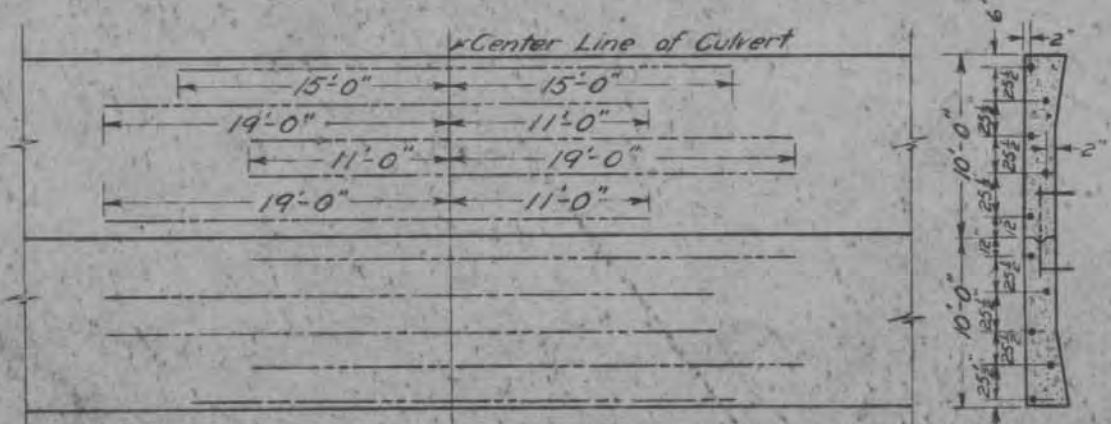 Center Line of Culvert
15'-0" 15'-0"
19'-0" 11'-0"
11'-0" 19'-0"
19'-0" 11'-0"
6"
2"
25½
25½
25½
25½
12
10'-0"
2"
12
25½
25½
25½
25½
10'-0"